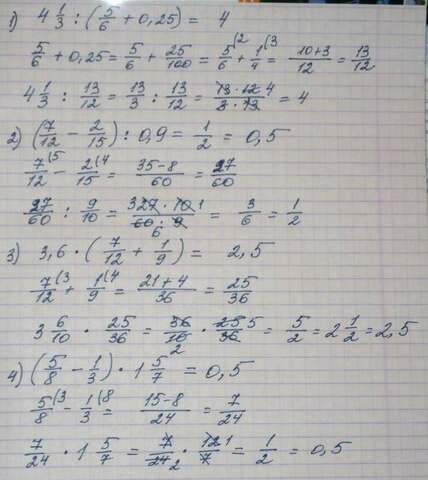 1) 4 1/3 : (5/6 + 0,25) = 4
5/6 + 0,25 = 5/6 + 25/100 = 5/6 (2 + 1/4 (3 = 10+3/12 = 13/12
4 1/3 : 13/12 = 13/3 : 13/12 = 13 · 12 4/3 · 13 = 4
2) (7/12 - 2/15) : 0,9 = 1/2 = 0,5
7/12 (5 - 2/15 (4 = 35-8/60 = 27/60
27/60 : 9/10 = 3 27 · 10 1/60 6 · 9 = 3/6 = 1/2
3) 3,6 · (7/12 + 1/9) = 2,5
7/12 (3 + 1/9 (4 = 21+4/36 = 25/36
3 6/10 · 25/36 = 36/10 2 · 25 5/36 = 5/2 = 2 1/2 = 2,5
4) (5/8 - 1/3) · 1 5/7 = 0,5
5/8 (3 - 1/3 (8 = 15-8/24 = 7/24
7/24 · 1 5/7 = 7/24 2 · 12 1/7 = 1/2 = 0,5